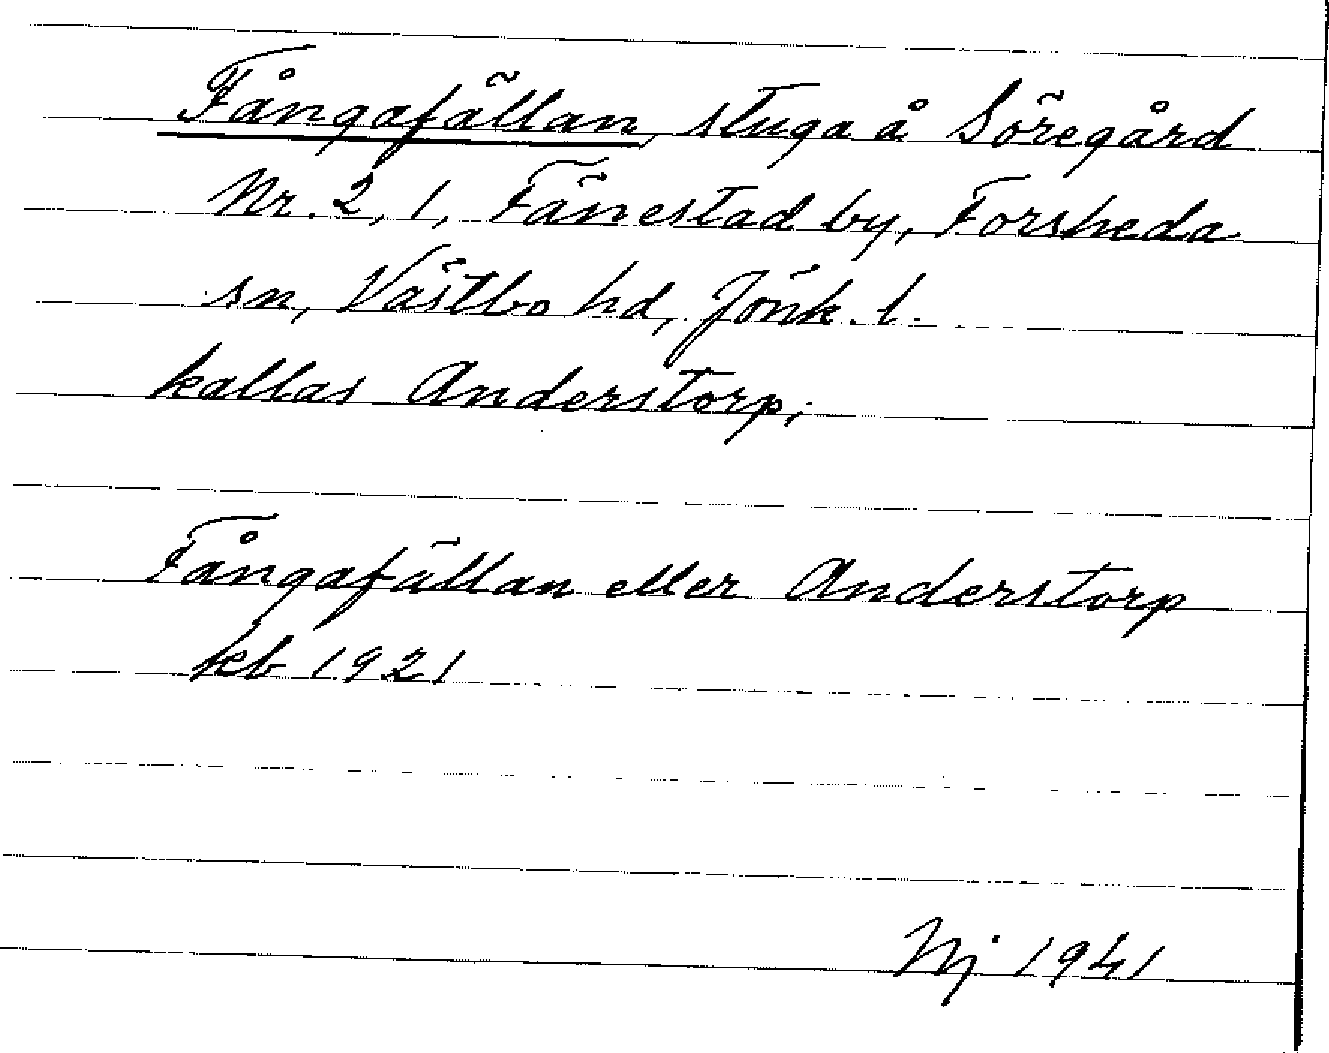 Fångafällan, stuga å Söregård
Nr. 2, 1, Fänestad by, Forsheda
sn, Västbo hd, Jönk. l.
kallas Anderstorp;
Fångafällan eller Anderstorp
kb 1921
Nj 1941